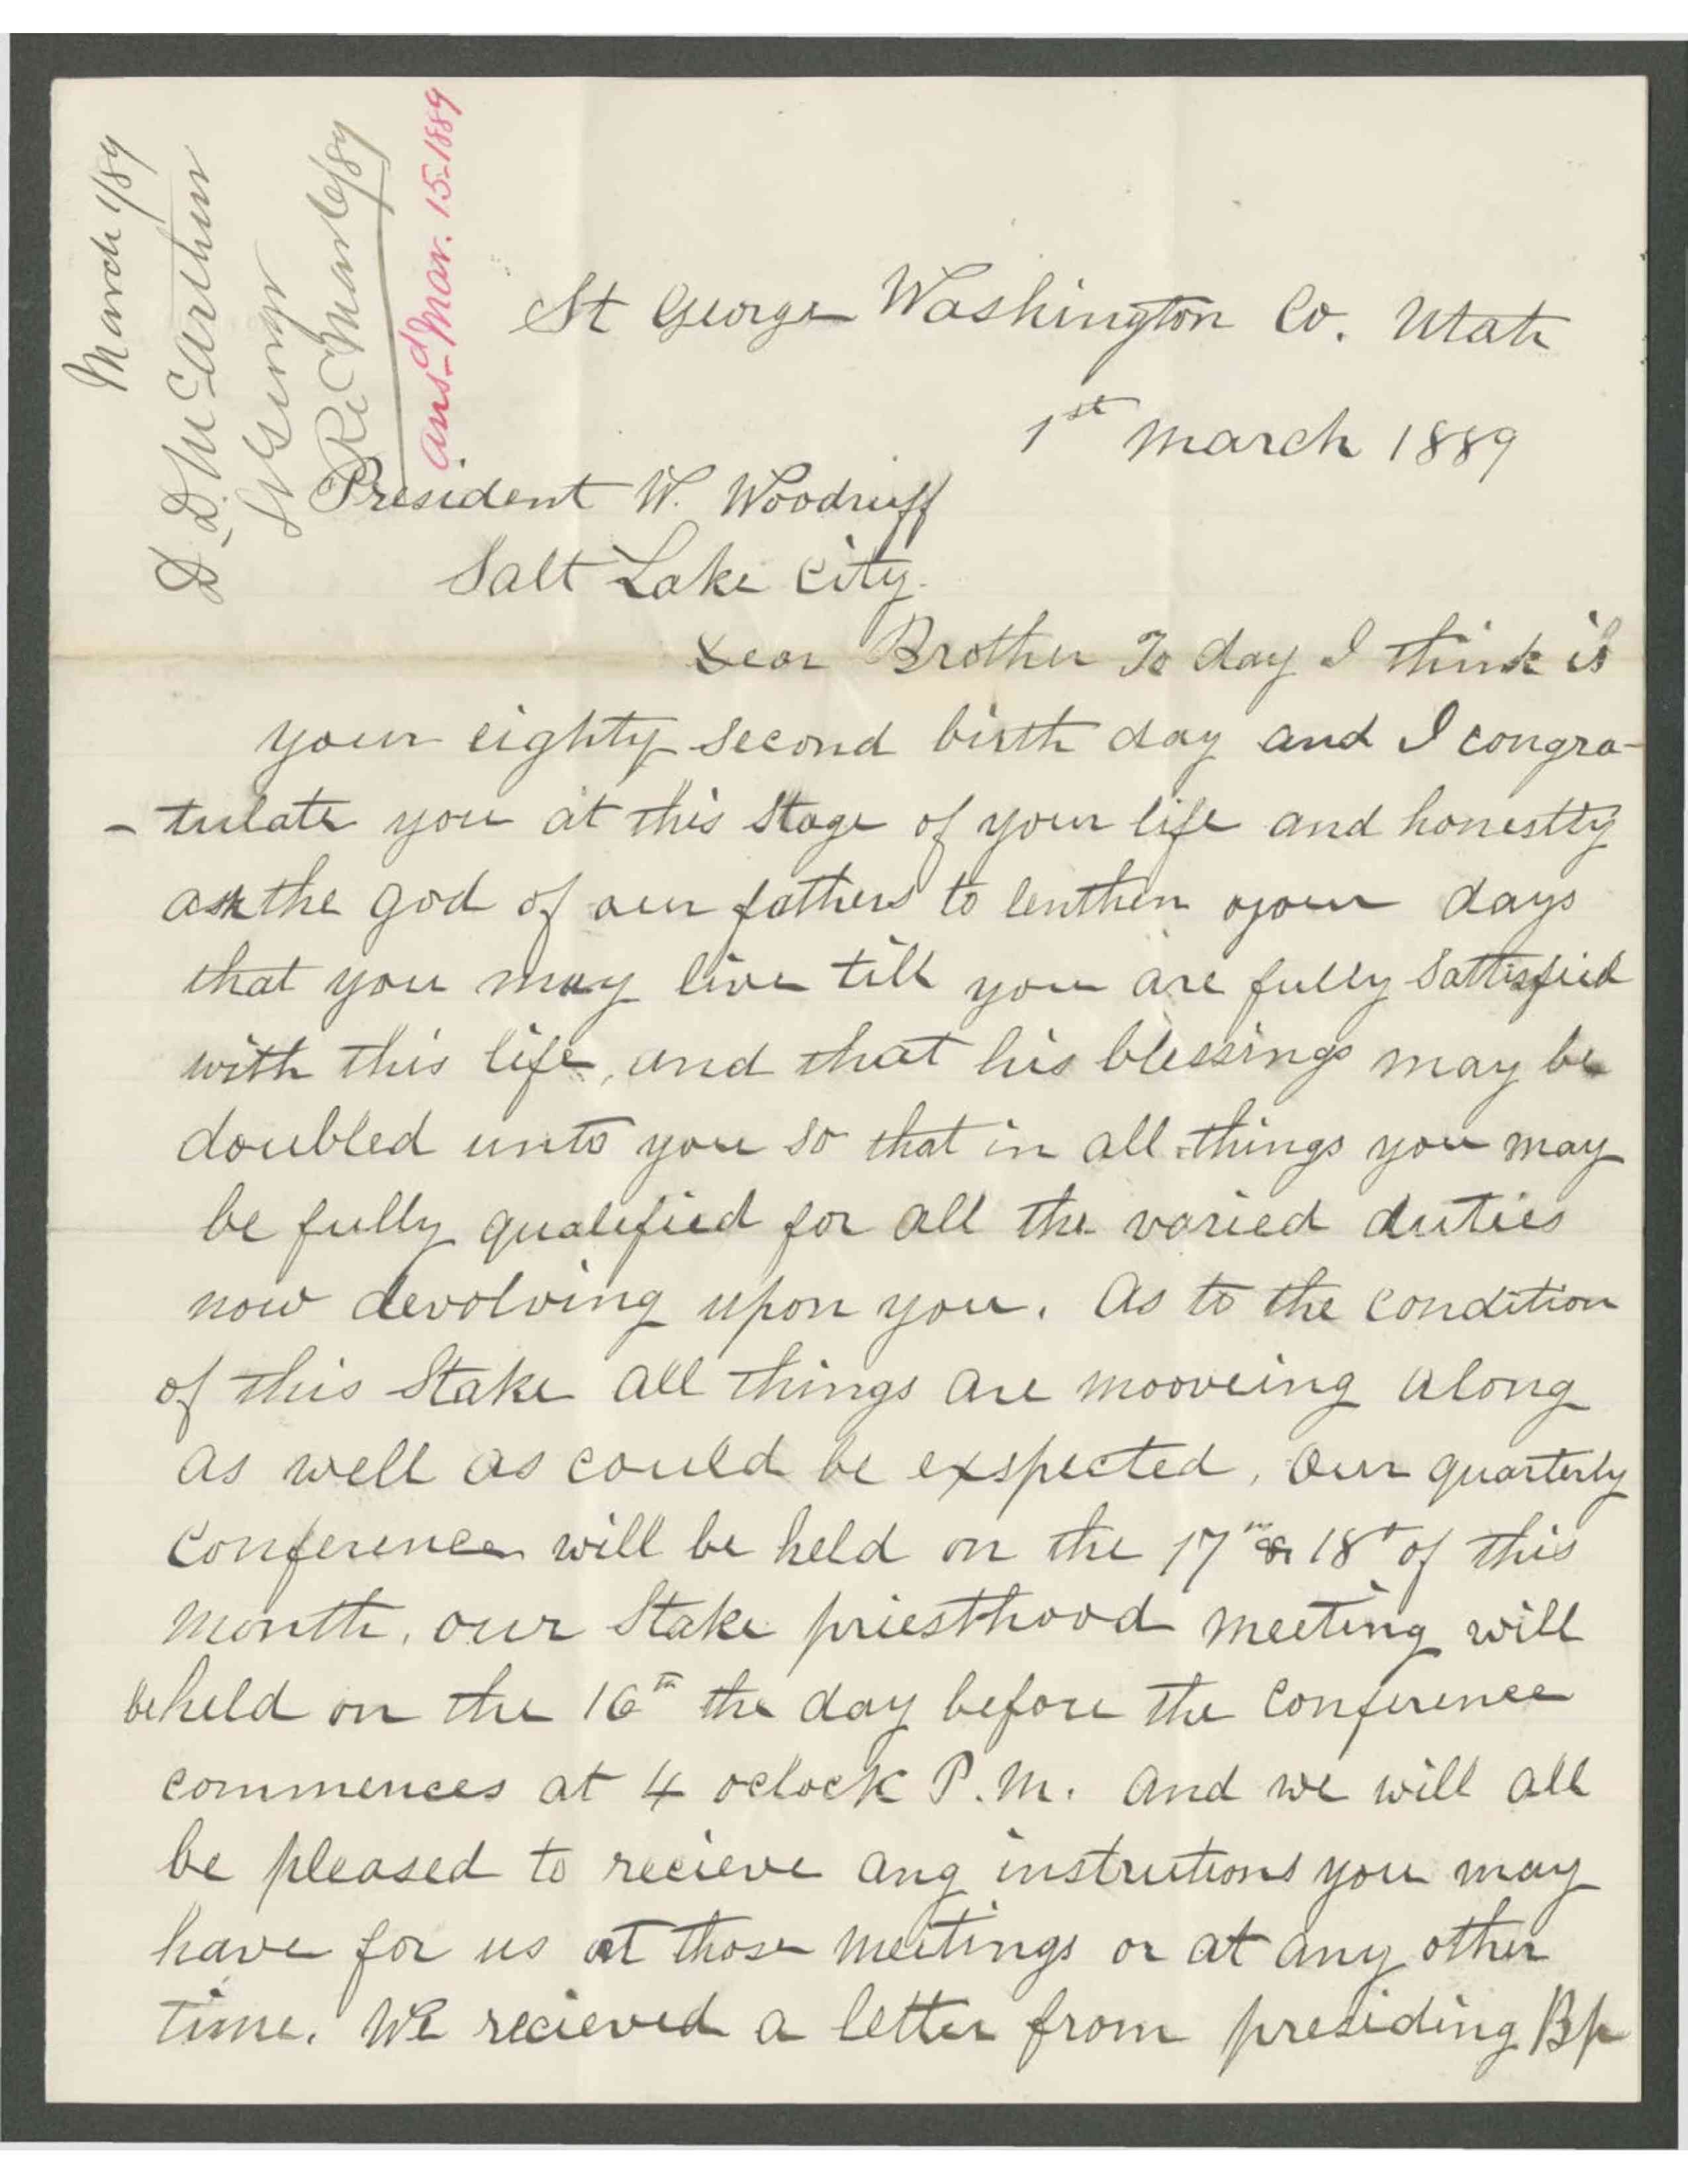 March 1/89
D. D. McCarthur
St George
Rec March 6/89
Ansd Mar. 15-1889
St George Washington Co. Utah
1st March 1889
President W. Woodruff
Salt Lake City.
Dear Brother To day I think is
your eighty second birth day and I congra-
-tulate you at this stage of your life and honestly
ask the god of our fathers to lenthen your days
that you may live till you are fully sattisfied
with this life, and that his blessings may be
doubled unto you so that in all things you may
be fully qualified for all the varied duties
now devolving upon you. As to the condition
of this Stake all things are mooveing along
as well as could be exspected, Our quarterly
Conference will be held on the 17th & 18th of this
month, our Stake priesthood meeting will
be held on the 16th the day before the Conference
commences at 4 oclock P.M. and we will all
be pleased to recieve any instrutions you may
have for us at those meetings or at any other
time. We recieved a letter from presiding Bp